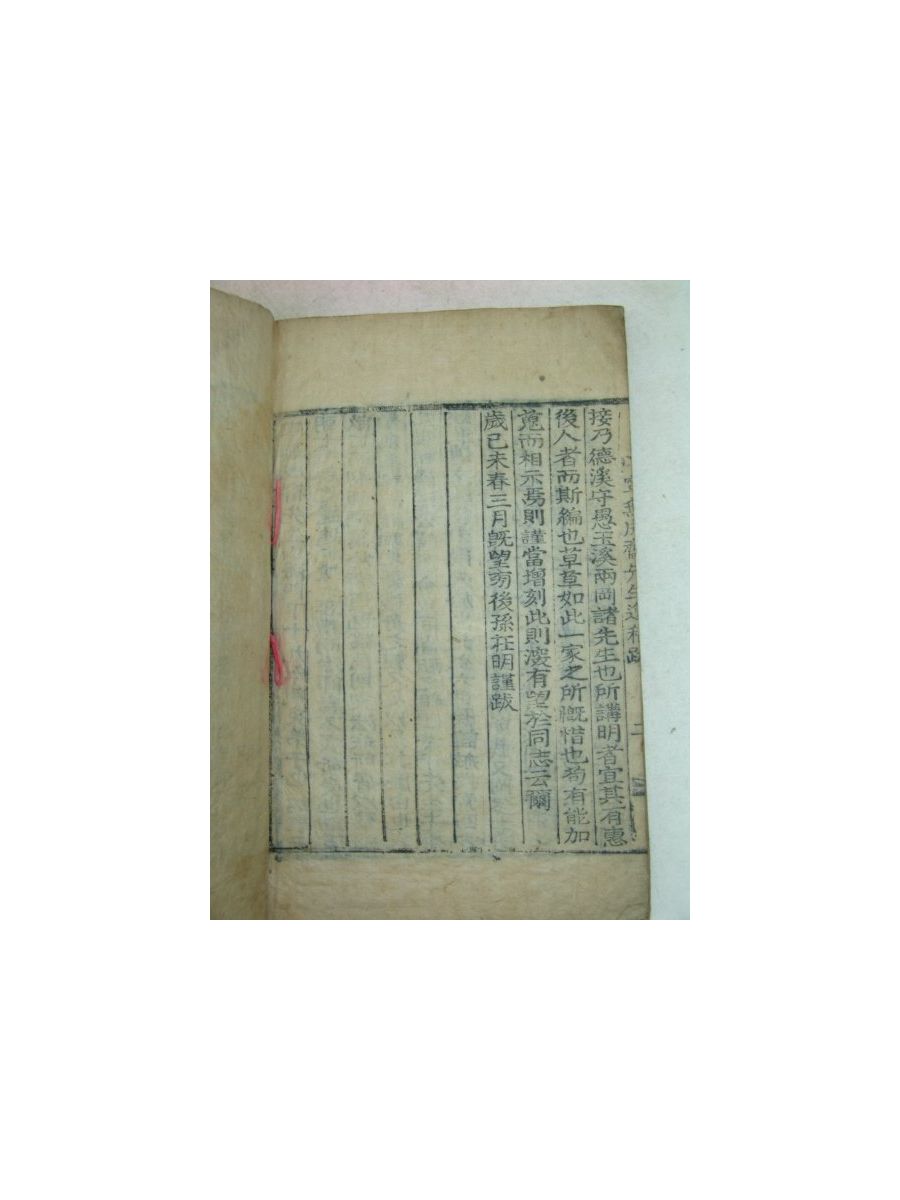 接乃德溪守愚玉溪兩岡諸先生也所講明者宜其有惠
後人者而斯編也草草如此一家之所慨惜也苟有能加
蒐而相示焉則謹當增刻此則湥有望於同志云爾
歲己未春三月旣望
後孫在明謹跋
先生逸稿跋
二